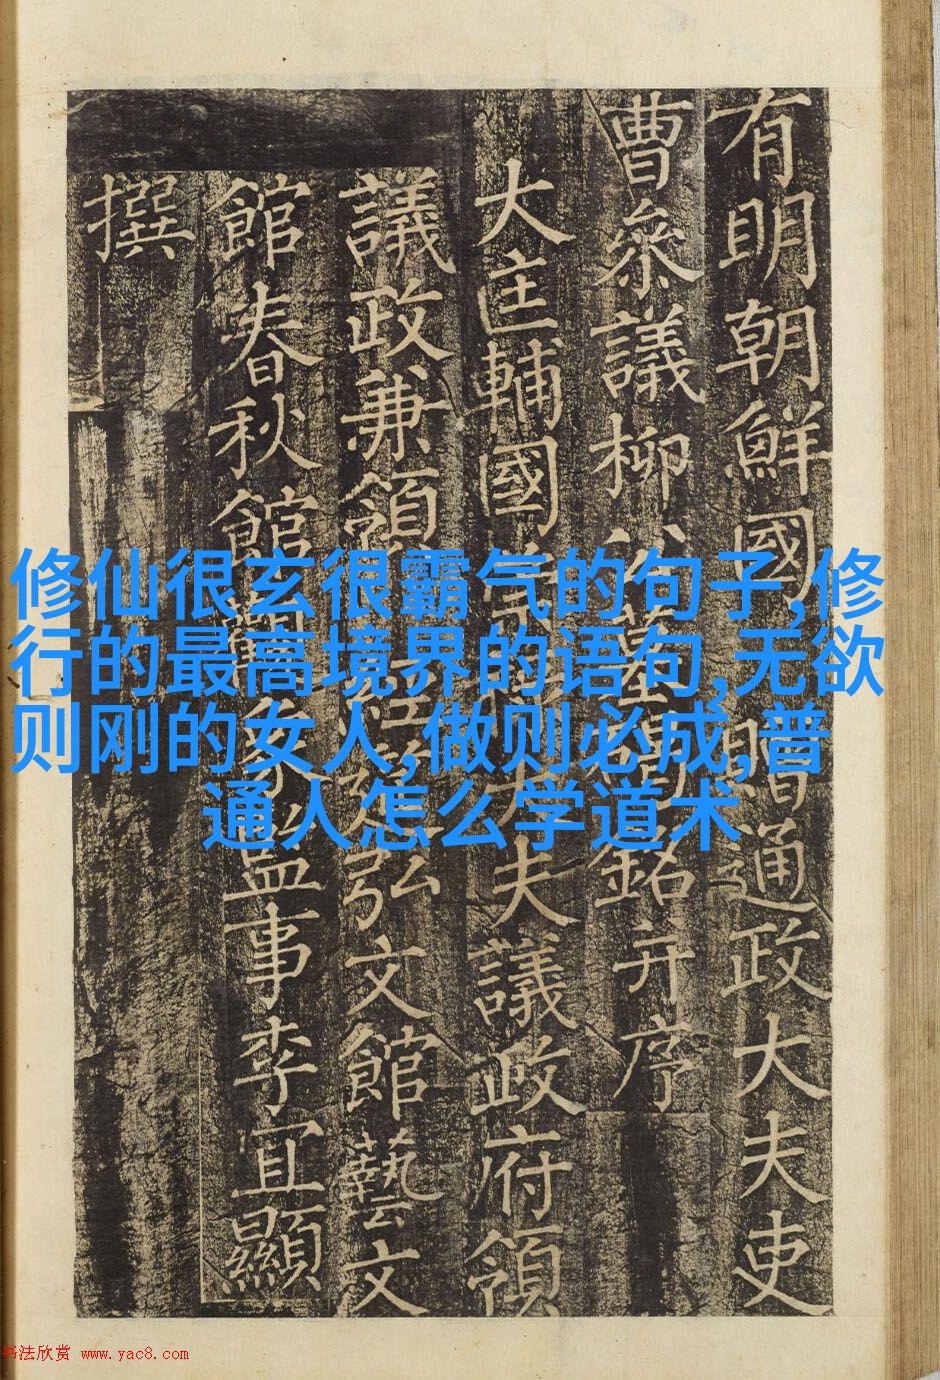 有明朝鮮國贈通政大夫吏
曹叅議柳公墓碣銘并序
大匡輔國大夫議政府領
議政兼領經筵弘文館藝文
館春秋館觀象監事李宜顯
撰
修仙很玄很霸气的句子,修
行的最高境界的语句,无欲
则刚的女人,做则必成,普
通人怎么学道术
书法欣赏 www.yac8.com